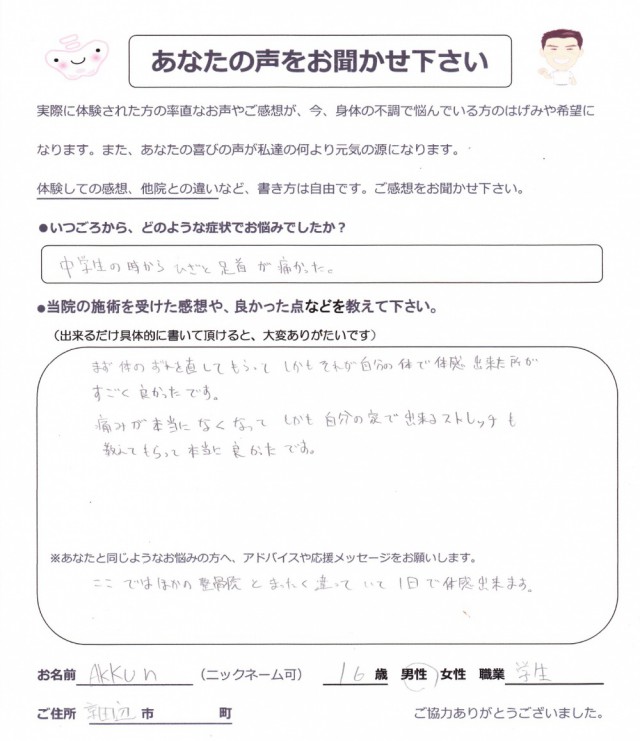 あなたの声をお聞かせ下さい
実際に体験された方の率直なお声やご感想が、今、身体の不調で悩んでいる方のはげみや希望に
なります。また、あなたの喜びの声が私達の何より元気の源になります。
体験しての感想、他院との違いなど、書き方は自由です。ご感想をお聞かせ下さい。
●いつごろから、どのような症状でお悩みでしたか？
中学生の時から ひざと足首が痛かった。
●当院の施術を受けた感想や、良かった点などを教えて下さい。
（出来るだけ具体的に書いて頂けると、大変ありがたいです）
まず体のずれを直してもらって しかもそれが自分の体で体感出来た所が
すごく良かったです。
痛みが本当になくなって しかも自分の家で出来るストレッチも
教えてもらって本当に良かったです。
※あなたと同じようなお悩みの方へ、アドバイスや応援メッセージをお願いします。
ここではほかの整骨院とまったく違っていて1日で体感出来ます。
お名前 AKKUn （ニックネーム可） 16 歳 男性 女性 職業 学生
ご住所 京田辺 市 町 ご協力ありがとうございました。